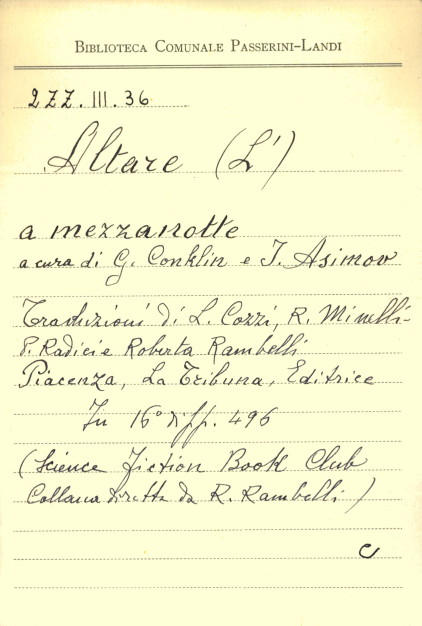 BIBLIOTECA COMUNALE PASSERINI-LANDI
2ZZ. III. 36
Altare (L')
a mezzanotte
a cura di G. Conklin e I. Asimov
Traduzioni di L. Cozzi, R. Minelli-
P. Radici e Roberta Rambelli
Piacenza, La Tribuna, Editrice
In 16° di pp. 496
(Science Fiction Book Club
Collana diretta da R. Rambelli)
C